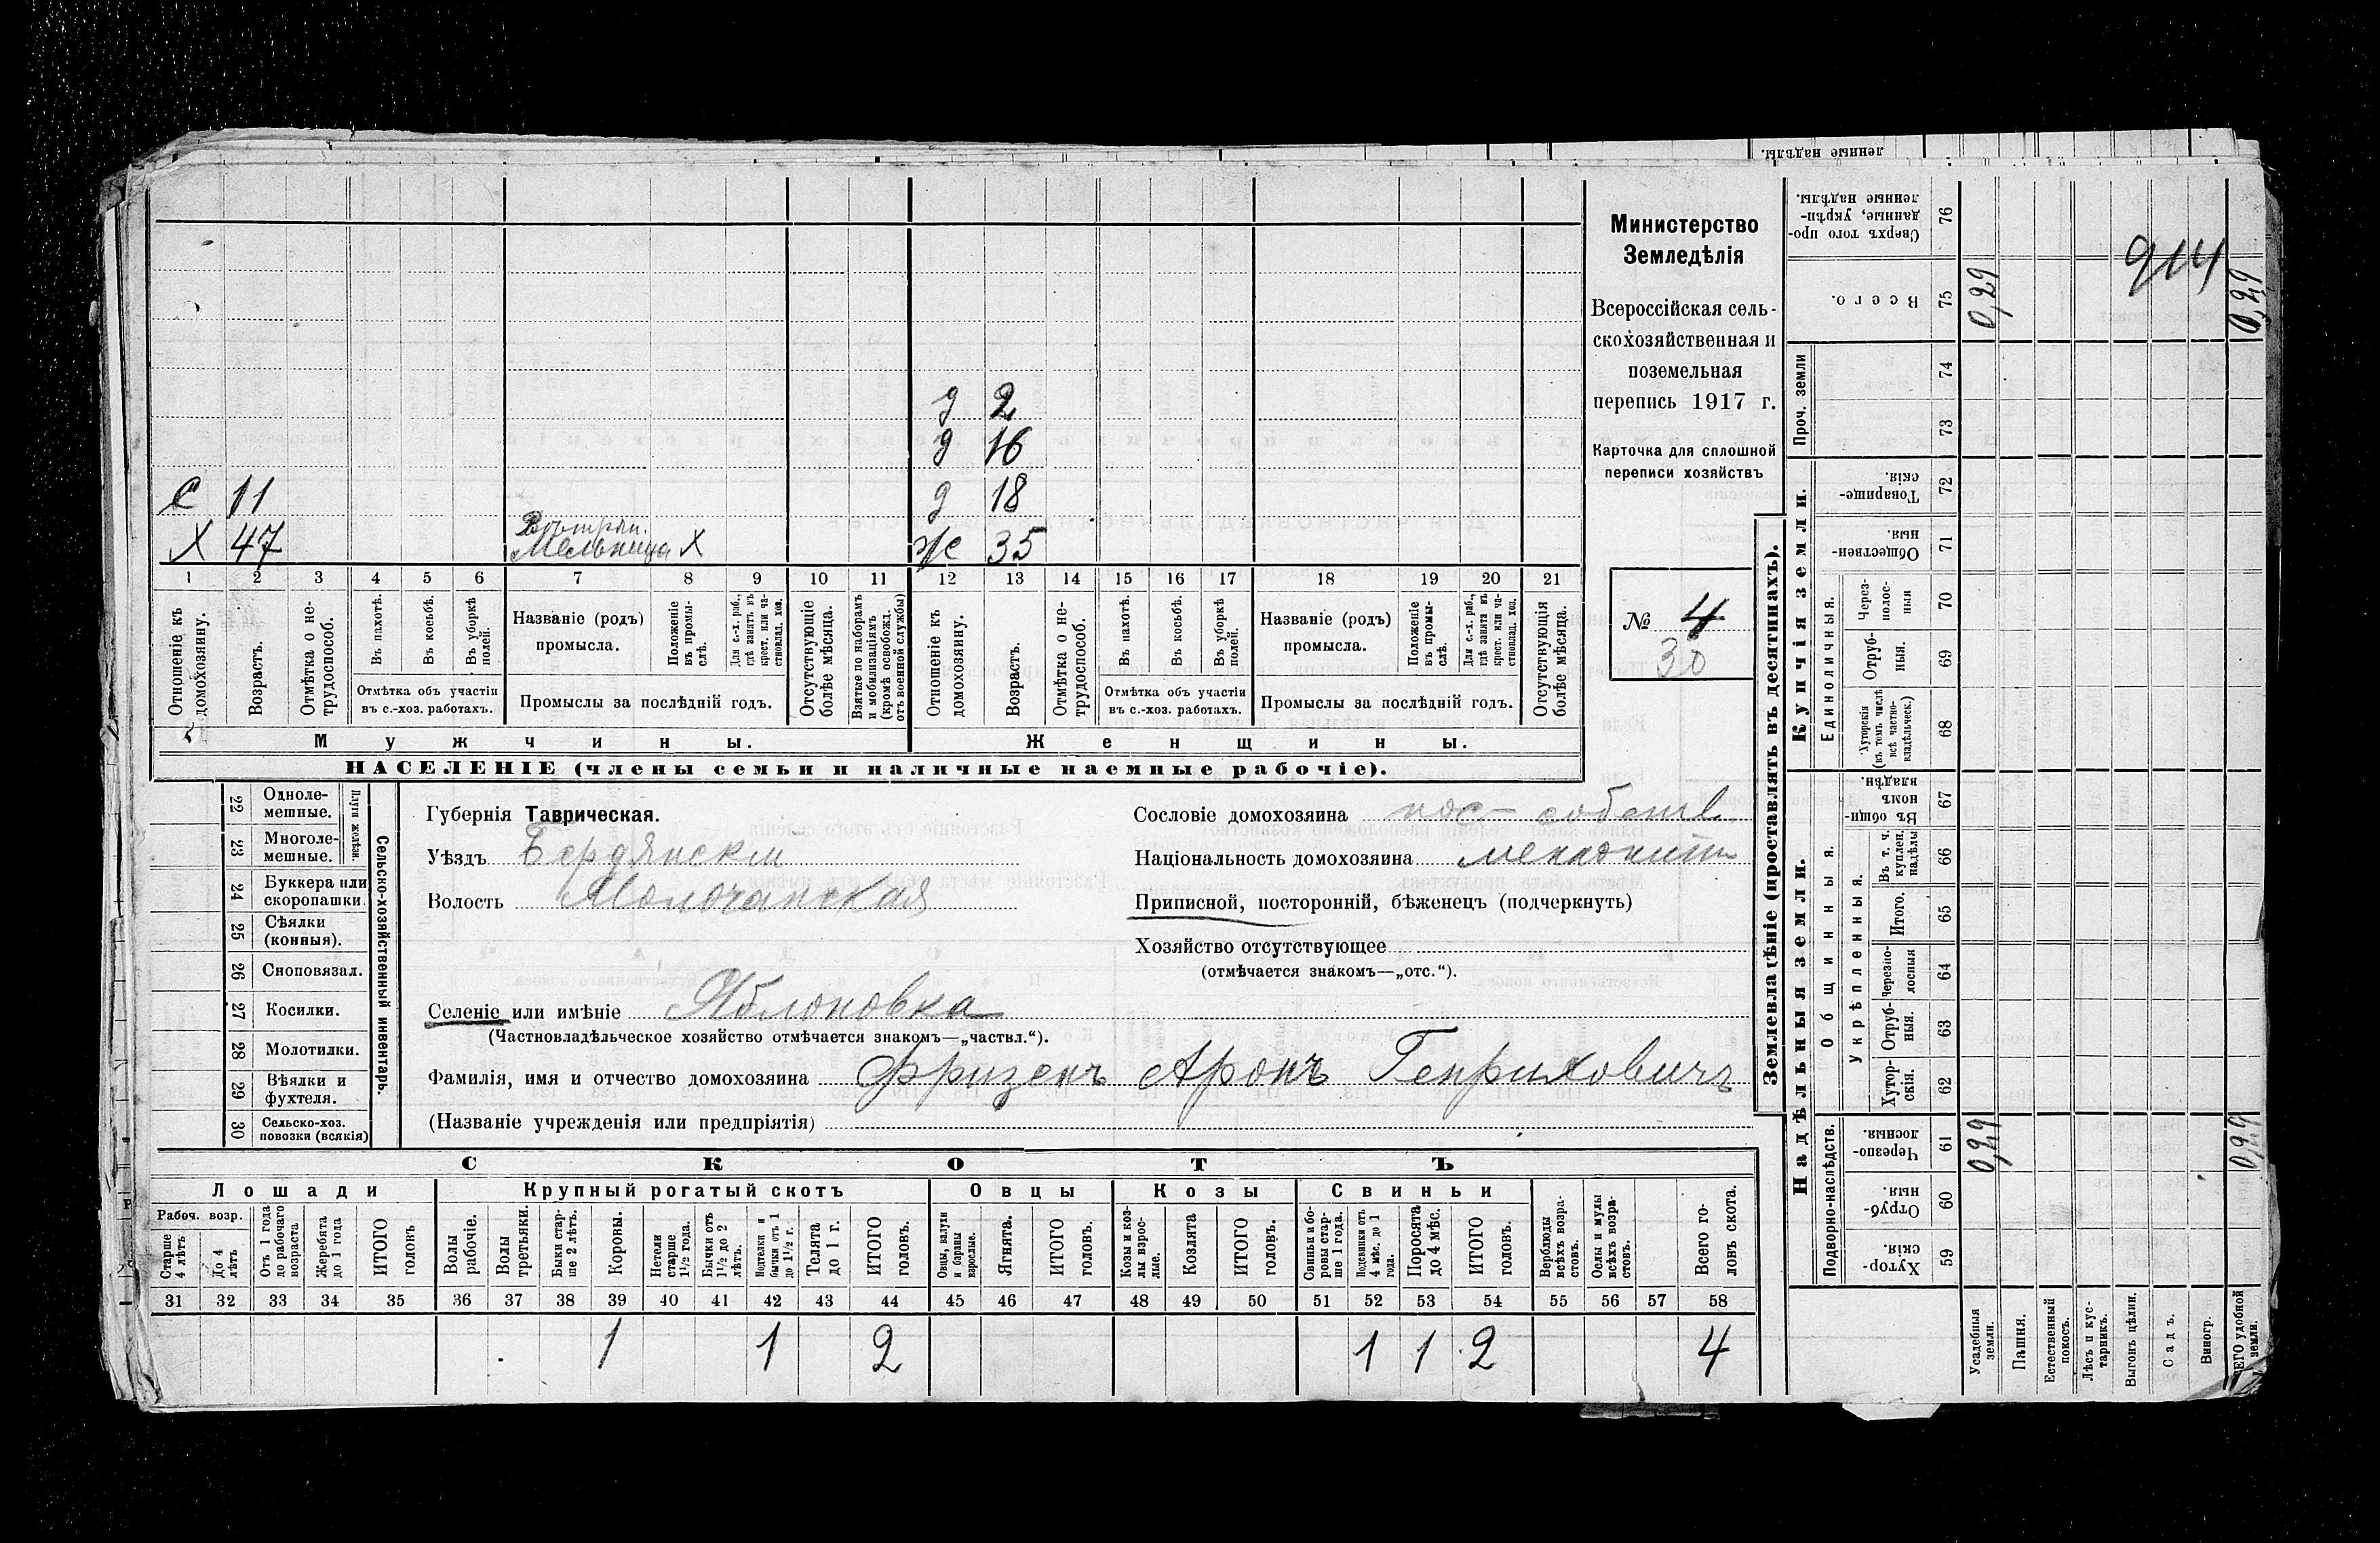 ленные надѣлы.
Министерство
Земледѣлія
Всероссійская сель-
скохозяйственная и
поземельная
перепись 1917 г.
Карточка для сплошной
переписи хозяйствъ
№ 4
30
д 2
д 16
С 11 д 18
Х 47 Вѣтрян. Мельница Х Ж 35
1 2 3 4 5 6 7 8 9 10 11 12 13 14 15 16 17 18 19 20 21
Отношеніе къ домохозяину.
Возрастъ.
Отмѣтка о не-трудоспособ.
Въ пахотѣ.
Въ косьбѣ.
Въ уборкѣ полей.
Отмѣтка объ участіи
въ с.-хоз. работахъ.
Названіе (родъ)
промысла.
Положеніе въ промы-слѣ.
Для с.-х. раб., гдѣ занятъ въ крест. или ча-стновлад. хоз.
Промыслы за послѣдній годъ.
Отсутствующіе болѣе мѣсяца.
Взятые по наборамъ и мобилизаціямъ (кромѣ освобожд. отъ военной службы)
Отношеніе къ домохозяину.
Возрастъ.
Отмѣтка о не-трудоспособ.
Въ пахотѣ.
Въ косьбѣ.
Въ уборкѣ полей.
Отмѣтка объ участіи
въ с.-хоз. работахъ.
Названіе (родъ)
промысла.
Положеніе въ промы-слѣ.
Для с.-х. раб., гдѣ занята въ крест. или ча-стновлад. хоз.
Промыслы за послѣдній годъ.
Отсутствующія болѣе мѣсяца.
Мужчины. Женщины.
НАСЕЛЕНІЕ (члены семьи и наличные наемные рабочіе).
22 Одноле-мешные.
23 Многоле-мешные.
Плуги желѣзн.
24 Буккера или скоропашки
25 Сѣялки (конныя).
26 Сноповязал.
27 Косилки.
28 Молотилки.
29 Вѣялки и фухтеля.
30 Сельско-хоз. повозки (всякія)
Сельско-хозяйственный инвентарь.
Губернія Таврическая.
Уѣздъ Бердянскій
Волость Молочанская
Сословіе домохозяина пос- собств.
Національность домохозяина меннонит
Приписной, посторонній, бѣженецъ (подчеркнуть)
Хозяйство отсутствующее
(отмѣчается знакомъ—„отс.“).
Селеніе или имѣніе Яблоновка
(Частновладѣльческое хозяйство отмѣчается знакомъ—„частвл.“).
Фамилія, имя и отчество домохозяина Фризенъ Аронъ Генриховичъ
(Названіе учрежденія или предпріятія)
СКОТЪ
Лошади Крупный рогатый скотъ Овцы Козы Свиньи
Рабоч. возр.
Старше 4 лѣтъ
До 4 лѣтъ
Отъ 1 года до рабочаго возраста
Жеребята до 1 года
ИТОГО головъ
Волы рабочіе.
Волы третьяки.
Быки стар-ше 2 лѣтъ.
Коровы.
Нетели старше 1½ года.
Бычки отъ 1½ до 2 лѣтъ.
Подтелки и бычки отъ 1 до 1½ г.
Телята до 1 г.
ИТОГО головъ.
Овцы, валухи и бараны взрослые.
Ягнята.
ИТОГО головъ.
Козы и коз-лы взрос-лые.
Козлята
ИТОГО головъ.
Свиньи и бо-ровы стар-ше 1 года.
Подсвинки отъ 4 мѣс. до 1 года.
Поросята до 4 мѣс.
ИТОГО головъ.
Верблюды всѣхъ возра-стовъ.
Ослы и мулы всѣхъ возра-стовъ.
Всего го-ловъ скота.
31 32 33 34 35 36 37 38 39 40 41 42 43 44 45 46 47 48 49 50 51 52 53 54 55 56 57 58
1 1 2 1 1 2 4
Землевладѣніе (проставлять въ десятинахъ).
Купчія земли.
Надѣльныя земли.
Сверхъ того про-данные, укрѣп-ленные надѣлы. 76
Всего. 75 0,29 914 0,29
Проч. земли 74 73
Товарище-скія 72
Обществен-ныя. 71
Единоличныя.
Через-полос-ныя 70
Отруб-ныя. 69
Хуторскія (въ томъ числѣ всѣ частно-владѣльческ.) 68
Общинныя.
Въ общи-номъ владѣн. 67
Въ т. ч. куплен. надѣлы 66
Укрѣпленныя.
Итого. 65
Черезпо-лосныя 64
Отруб-ныя. 63
Хутор-скія. 62
Подворно-наслѣдств.
Черезпо-лосныя. 61 0,29 0,29
Отруб-ныя. 60
Хутор-скія. 59
Усадебныя земли.
Пашня.
Естественный покосъ.
Лѣсъ и кус-тарникъ.
Выгонъ цѣлин.
Садъ.
Виногр.
ЕГО удобной земли.